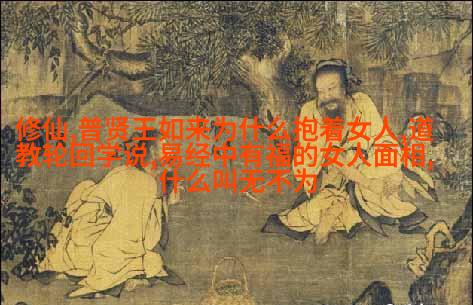 修仙,普贤王如来为什么抱着女人,道
教轮回学说,易经中有福的女人面相,
什么叫无不为